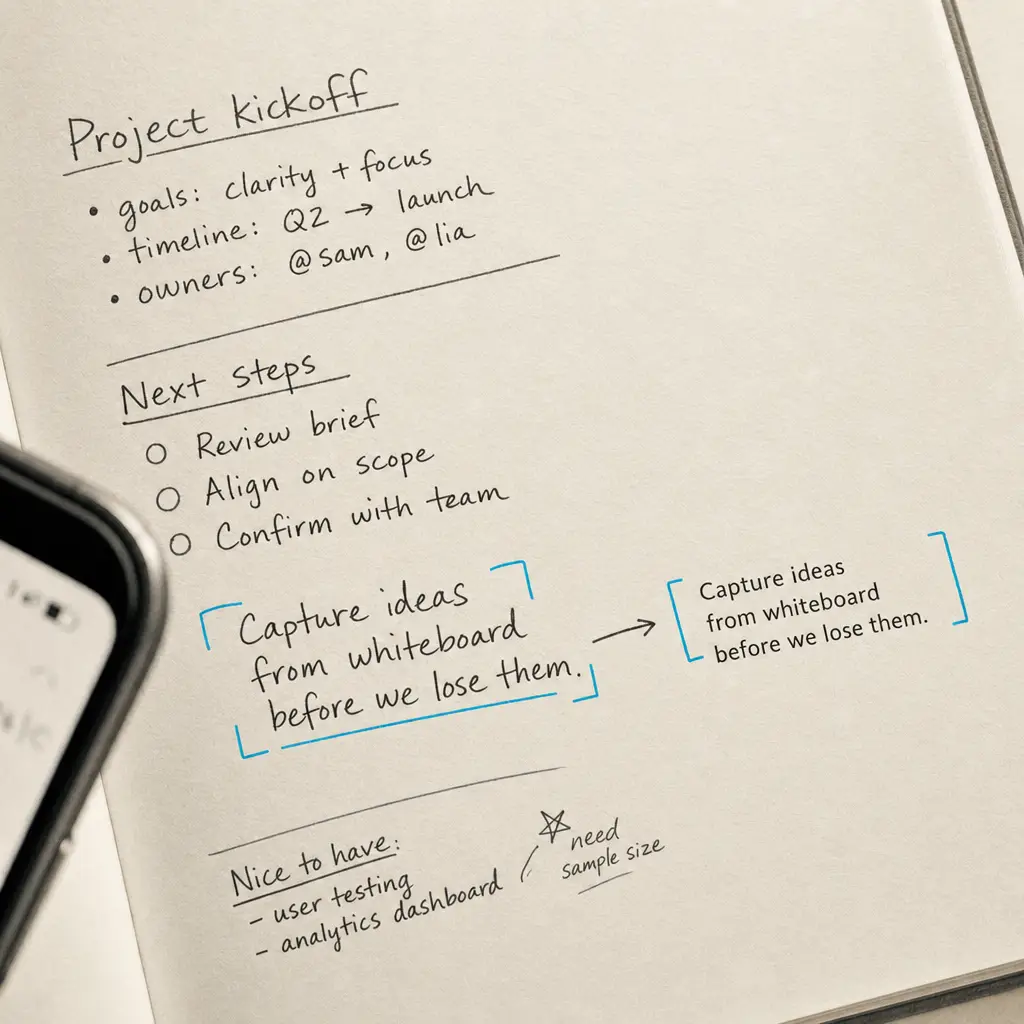 Project kickoff
• goals: clarity + focus
• timeline: Q2 → launch
• owners: @sam, @lia
Next steps
○ Review brief
○ Align on scope
○ Confirm with team
Capture ideas
from whiteboard
before we lose them.
→
Capture ideas
from whiteboard
before we lose them.
Nice to have:
- user testing
- analytics dashboard
☆ need
sample size